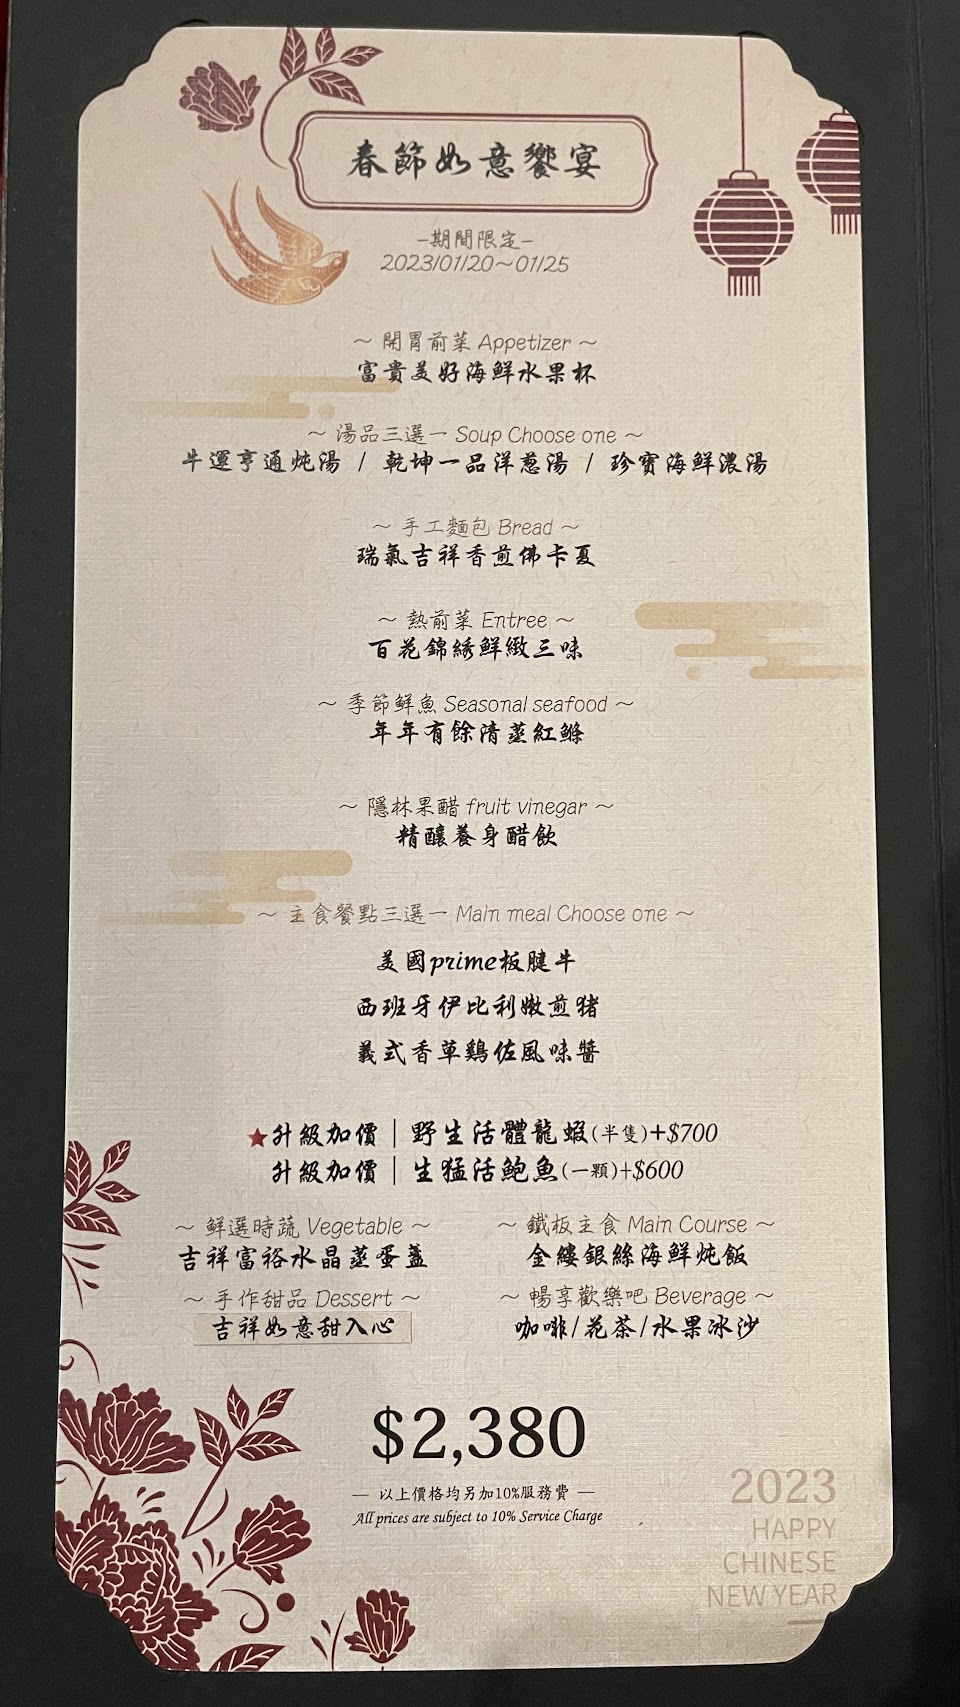 春節如意饗宴
–期間限定–
2023/01/20～01/25
～ 開胃前菜 Appetizer ～
富貴美好海鮮水果杯
～ 湯品三選一 Soup Choose one ～
牛運亨通炖湯 / 乾坤一品洋蔥湯 / 珍寶海鮮濃湯
～ 手工麵包 Bread ～
瑞氣吉祥香煎佛卡夏
～ 熱前菜 Entree ～
百花錦綉鮮緻三味
～ 季節鮮魚 Seasonal seafood ～
年年有餘清蒸紅鰷
～ 隱林果醋 fruit vinegar ～
精釀養身醋飲
～ 主食餐點三選一 Main meal Choose one ～
美國prime板腱牛
西班牙伊比利嫩煎豬
義式香草雞佐風味醬
★升級加價｜野生活體龍蝦(半隻)+$700
升級加價｜生猛活鮑魚(一顆)+$600
～ 鮮選時蔬 Vegetable ～
吉祥富裕水晶蒸蛋蓋
～ 鐵板主食 Main Course ～
金縷銀絲海鮮炖飯
～ 手作甜品 Dessert ～
吉祥如意甜入心
～ 暢享歡樂吧 Beverage ～
咖啡/花茶/水果冰沙
$2,380
— 以上價格均另加10%服務費 —
All prices are subject to 10% Service Charge
2023
HAPPY
CHINESE
NEW YEAR